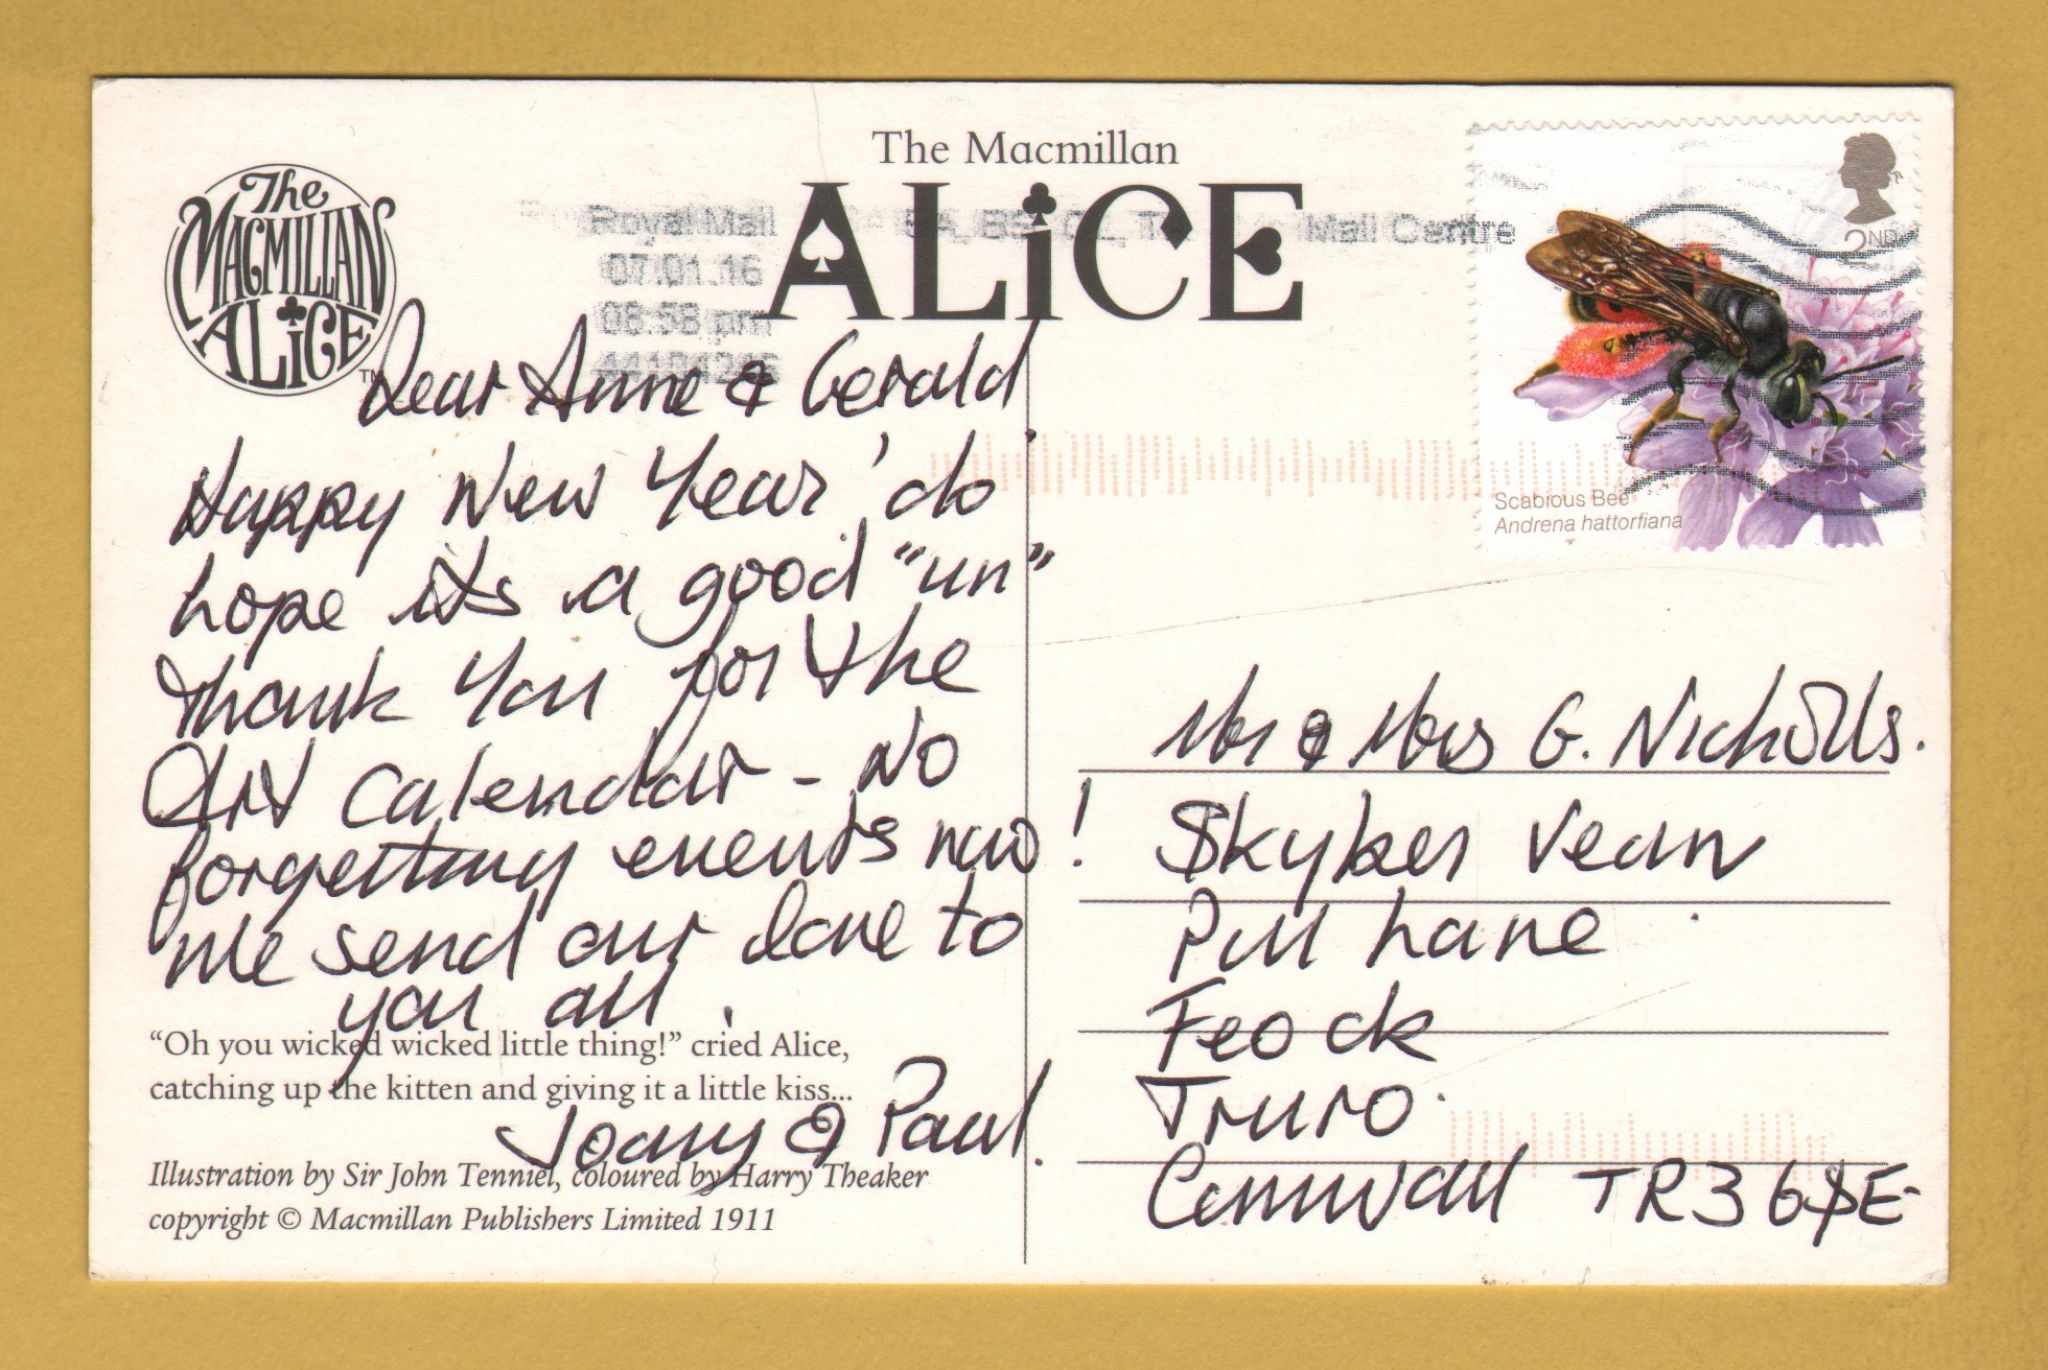 The Macmillan
ALiCE
The
MACMILLAN
ALiCE
TM
Royal Mail
Mail Centre
07.01.16
06:58 pm
44191246
2ND
Scabious Bee
Andrena hattorfiana
Dear Anne & Gerald
Happy New Year, do
hope its a good "un"
Thank You for the
Art Calendar - No
forgetting events now!
We send our love to
you all.
"Oh you wicked wicked little thing!" cried Alice,
catching up the kitten and giving it a little kiss...
Joany & Paul.
Illustration by Sir John Tenniel, coloured by Harry Theaker
copyright © Macmillan Publishers Limited 1911
Mr & Mrs G. Nicholls.
Skyber Vean
Pill Lane
Feock
Truro.
Cornwall TR3 6SE